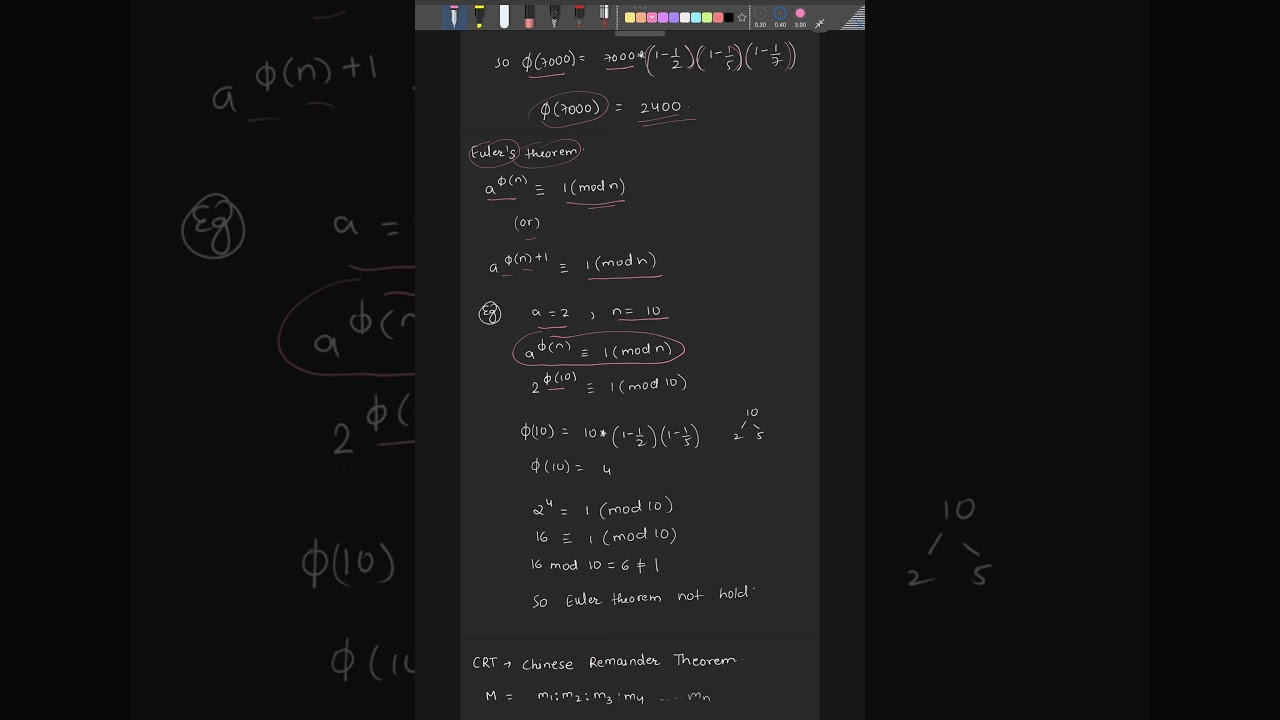 0.30 0.40 3.00
so ϕ(7000) = 7000*(1-1/2)(1-1/5)(1-1/7)
ϕ(7000) = 2400.
Euler's theorem.
a^ϕ(n) ≡ 1(mod n)
(or)
a^ϕ(n)+1 ≡ 1(mod n)
Eg a = 2 , n = 10
a^ϕ(n) ≡ 1(mod n)
2^ϕ(10) ≡ 1(mod 10)
ϕ(10) = 10*(1-1/2)(1-1/5)
10
2 5
ϕ(10) = 4
2^4 = 1 (mod 10)
16 ≡ 1 (mod 10)
16 mod 10 = 6 ≠ 1
So Euler theorem not hold.
CRT → Chinese Remainder Theorem.
M = m1:m2:m3:m4 ....mn
a^ϕ(n)+1
Eg a =
a^ϕ(n
2^ϕ(
ϕ(10)
ϕ(10
10
2 5